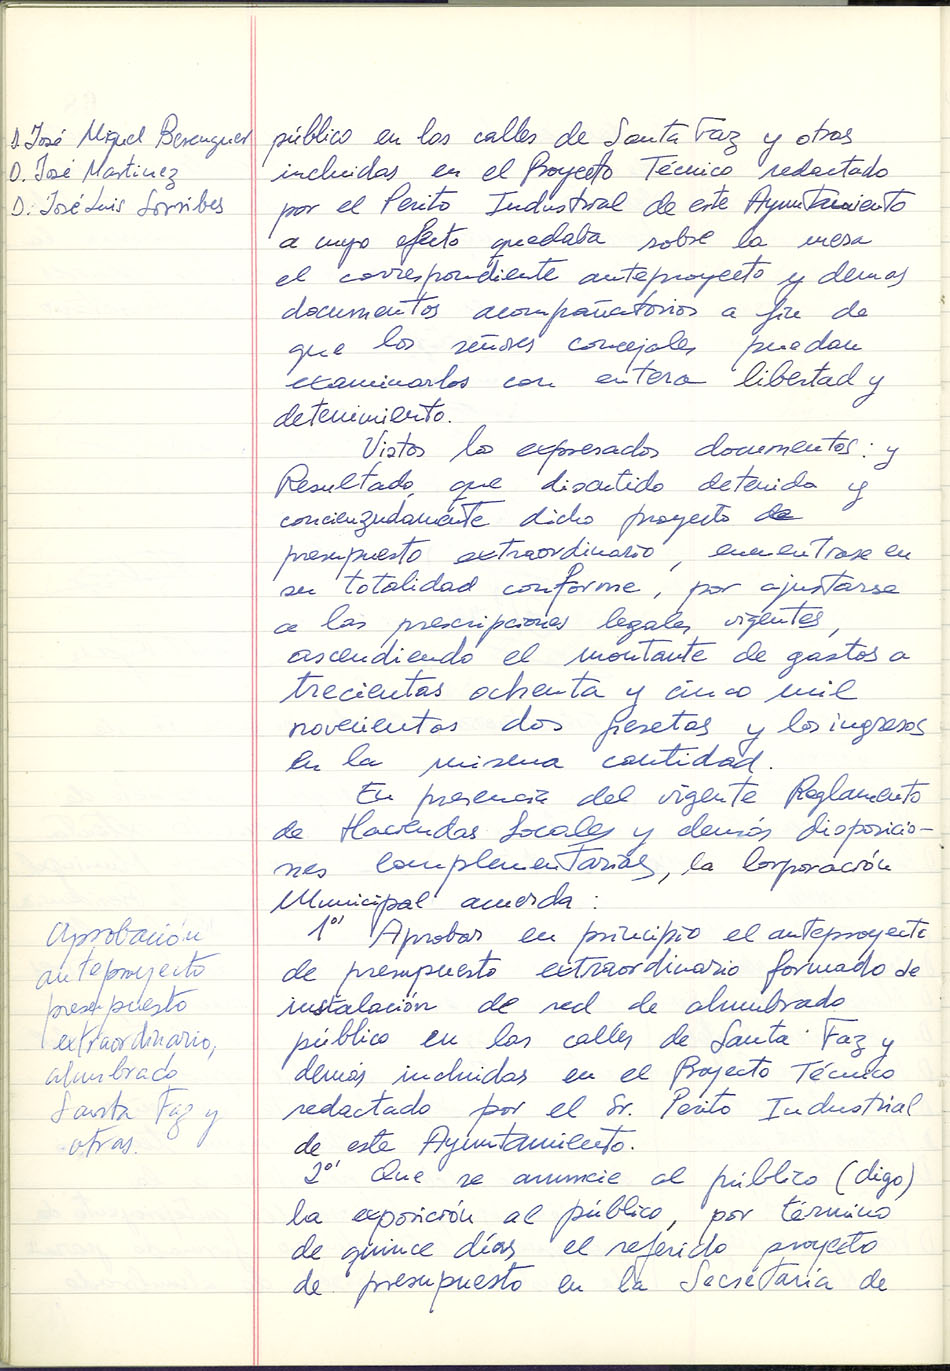 D. José Miguel Berenguer
D. José Martinez
D. José Luis Sorribes
público en las calles de Santa Faz y otras
incluidas en el Proyecto Técnico redactado
por el Perito Industrial de este Ayuntamiento
a cuyo efecto quedaba sobre la mesa
el correspondiente anteproyecto y demas
documentos acompañatorios a fin de
que los señores concejales puedan
examinarlos con entera libertad y
detenimiento.
Vistos lo expresados documentos: y
Resultado, que discutido detenida y
concienzudamente dicho proyecto de
presupuesto extraordinario, encuentrase en
su totalidad conforme, por ajustarse
a las prescripciones legales vigentes,
ascendiendo el montante de gastos a
trecientas ochenta y cinco mil
novecientas dos pesetas y los ingresos
en la misma cantidad.
En presencia del vigente Reglamento
de Haciendas Locales y demás disposicio-
nes complementarias, la Corporación
Municipal acuerda:
1º Aprobar en principio el anteproyecto
de presupuesto extraordinario formado de
instalación de red de alumbrado
público en las calles de Santa Faz y
demás incluidas en el Proyecto Técnico
redactado por el Sr. Perito Industrial
de este Ayuntamiento.
2º Que se anuncie al público (digo)
la exposición al público, por término
de quince días el referido proyecto
de presupuesto en la Secretaría de
Aprobación
anteproyecto
presupuesto
extraordinario,
alumbrado
Santa Faz y
otras.